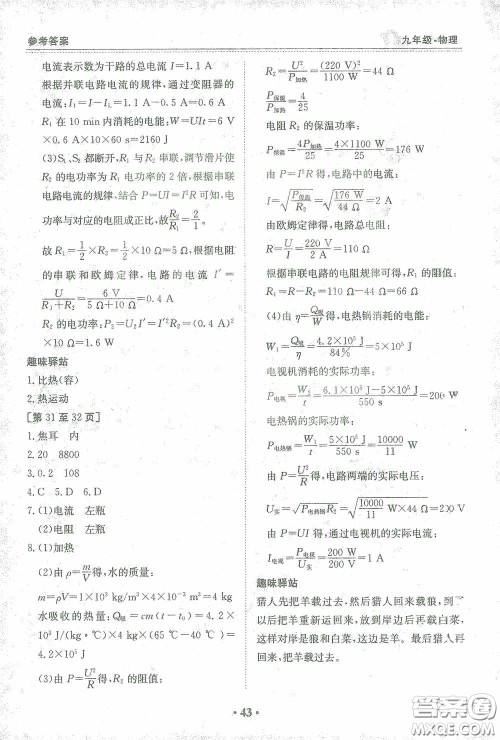 参考答案
九年级·物理
电流表示数为干路的总电流 I=1.1 A
根据并联电路电流的规律，通过变阻器的
电流：I₁=I-Iₗ=1.1 A-0.5 A=0.6 A
R₁ 在 10 min 内消耗的电能：W=UIt=6 V
×0.6 A×10×60 s=2160 J
(3)S₁、S₂ 都断开，R₁ 与 R₂ 串联，调节滑片使
R₂ 电功率为 R₁ 电功率的 2 倍，根据串联
电路电流的规律，结合 P=UI=I²R 可知，电
功率与对应的电阻成正比，故R₂/R₁=2/1。
故 R₁=1/2×R₂=1/2×10 Ω=5 Ω，根据电阻
的串联和欧姆定律，电路的电流 I′=
U/(R₁+R₂)=6 V/(5 Ω+10 Ω)=0.4 A
R₂ 的电功率：P₂=U₂I′=I′²R₂=(0.4 A)²×
10 Ω=1.6 W
趣味驿站
1.比热(容)
2.热运动
[第 31 至 32 页]
1.焦耳 内
2.20 8800
3.0.2 108
4.C 5.D 6.D
7.(1)电流 左瓶
(2)电阻 左瓶
8.(1)加热
(2)由 ρ=m/V得，水的质量：
m=ρV=1×10³ kg/m³×4×10⁻³ m³=4 kg
水吸收的热量：Q吸=cm(t-t₀)=4.2×
10³ J/(kg·℃)×4 kg×(45℃-20℃)=
4.2×10⁵ J
(3)由 P=U²/R得，R₂ 的阻值：
R₂=U²/P加热=(220 V)²/1100 W=44 Ω
P保温/P加热=4/25
电阻 R₂ 的保温功率：
P保温=4P加热/25=4×1100 W/25=176 W
由 P=I²R 得，电路中的电流：
I=√(P保温/R₂)=√(176 W/44 Ω)=2 A
由欧姆定律得，电路总电阻：
R=U/I=220 V/2 A=110 Ω
根据串联电路的电阻规律可得 R₁ 的阻值：
R₁=R-R₂=110 Ω-44 Ω=66 Ω
(4)由 η=Q吸/W得，电热锅消耗的电能：
W₁=Q吸/η=4.2×10⁵ J/84%=5×10⁵ J
电视机消耗的实际功率：
P电视=W₂/t=(6.1×10⁵ J-5×10⁵ J)/550 s=200 W
电热锅的实际功率：
P电热锅=W₁/t=5×10⁵ J/550 s=10000/11 W
由 P=U²/R得，电路两端的实际电压：
U实=√(P电热锅R₂)=√(10000/11 W×44 Ω)=200 V
由 P=UI 得，通过电视机的实际电流：
I电视=P电视/U实=200 W/200 V=1 A
趣味驿站
猎人先把羊载过去，然后猎人回来载狼，到了以
后把羊重新运回来，再把白菜载过去，放下白
菜，这样对岸是狼和白菜，猎人再回来把羊载过
去。
·43·